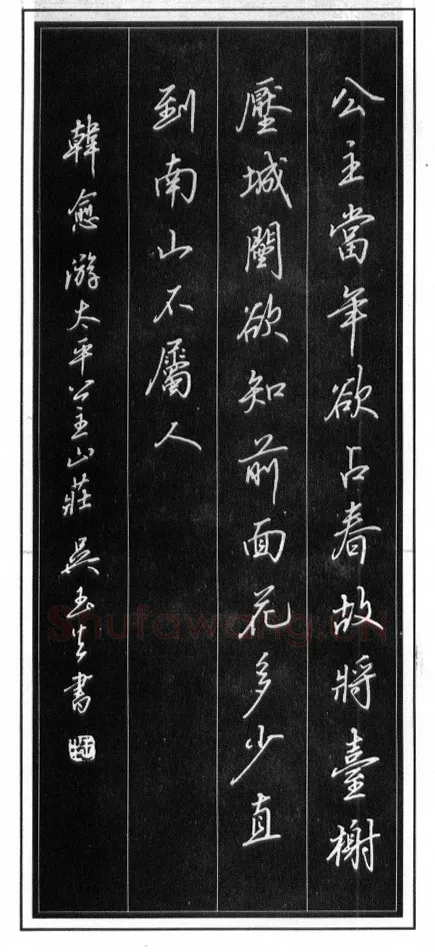 公主當年欲占春故將臺榭
壓城闉欲知前面花多少直
到南山不屬人
韓愈游太平公主山莊 吳玉生書
Shufawang.CN